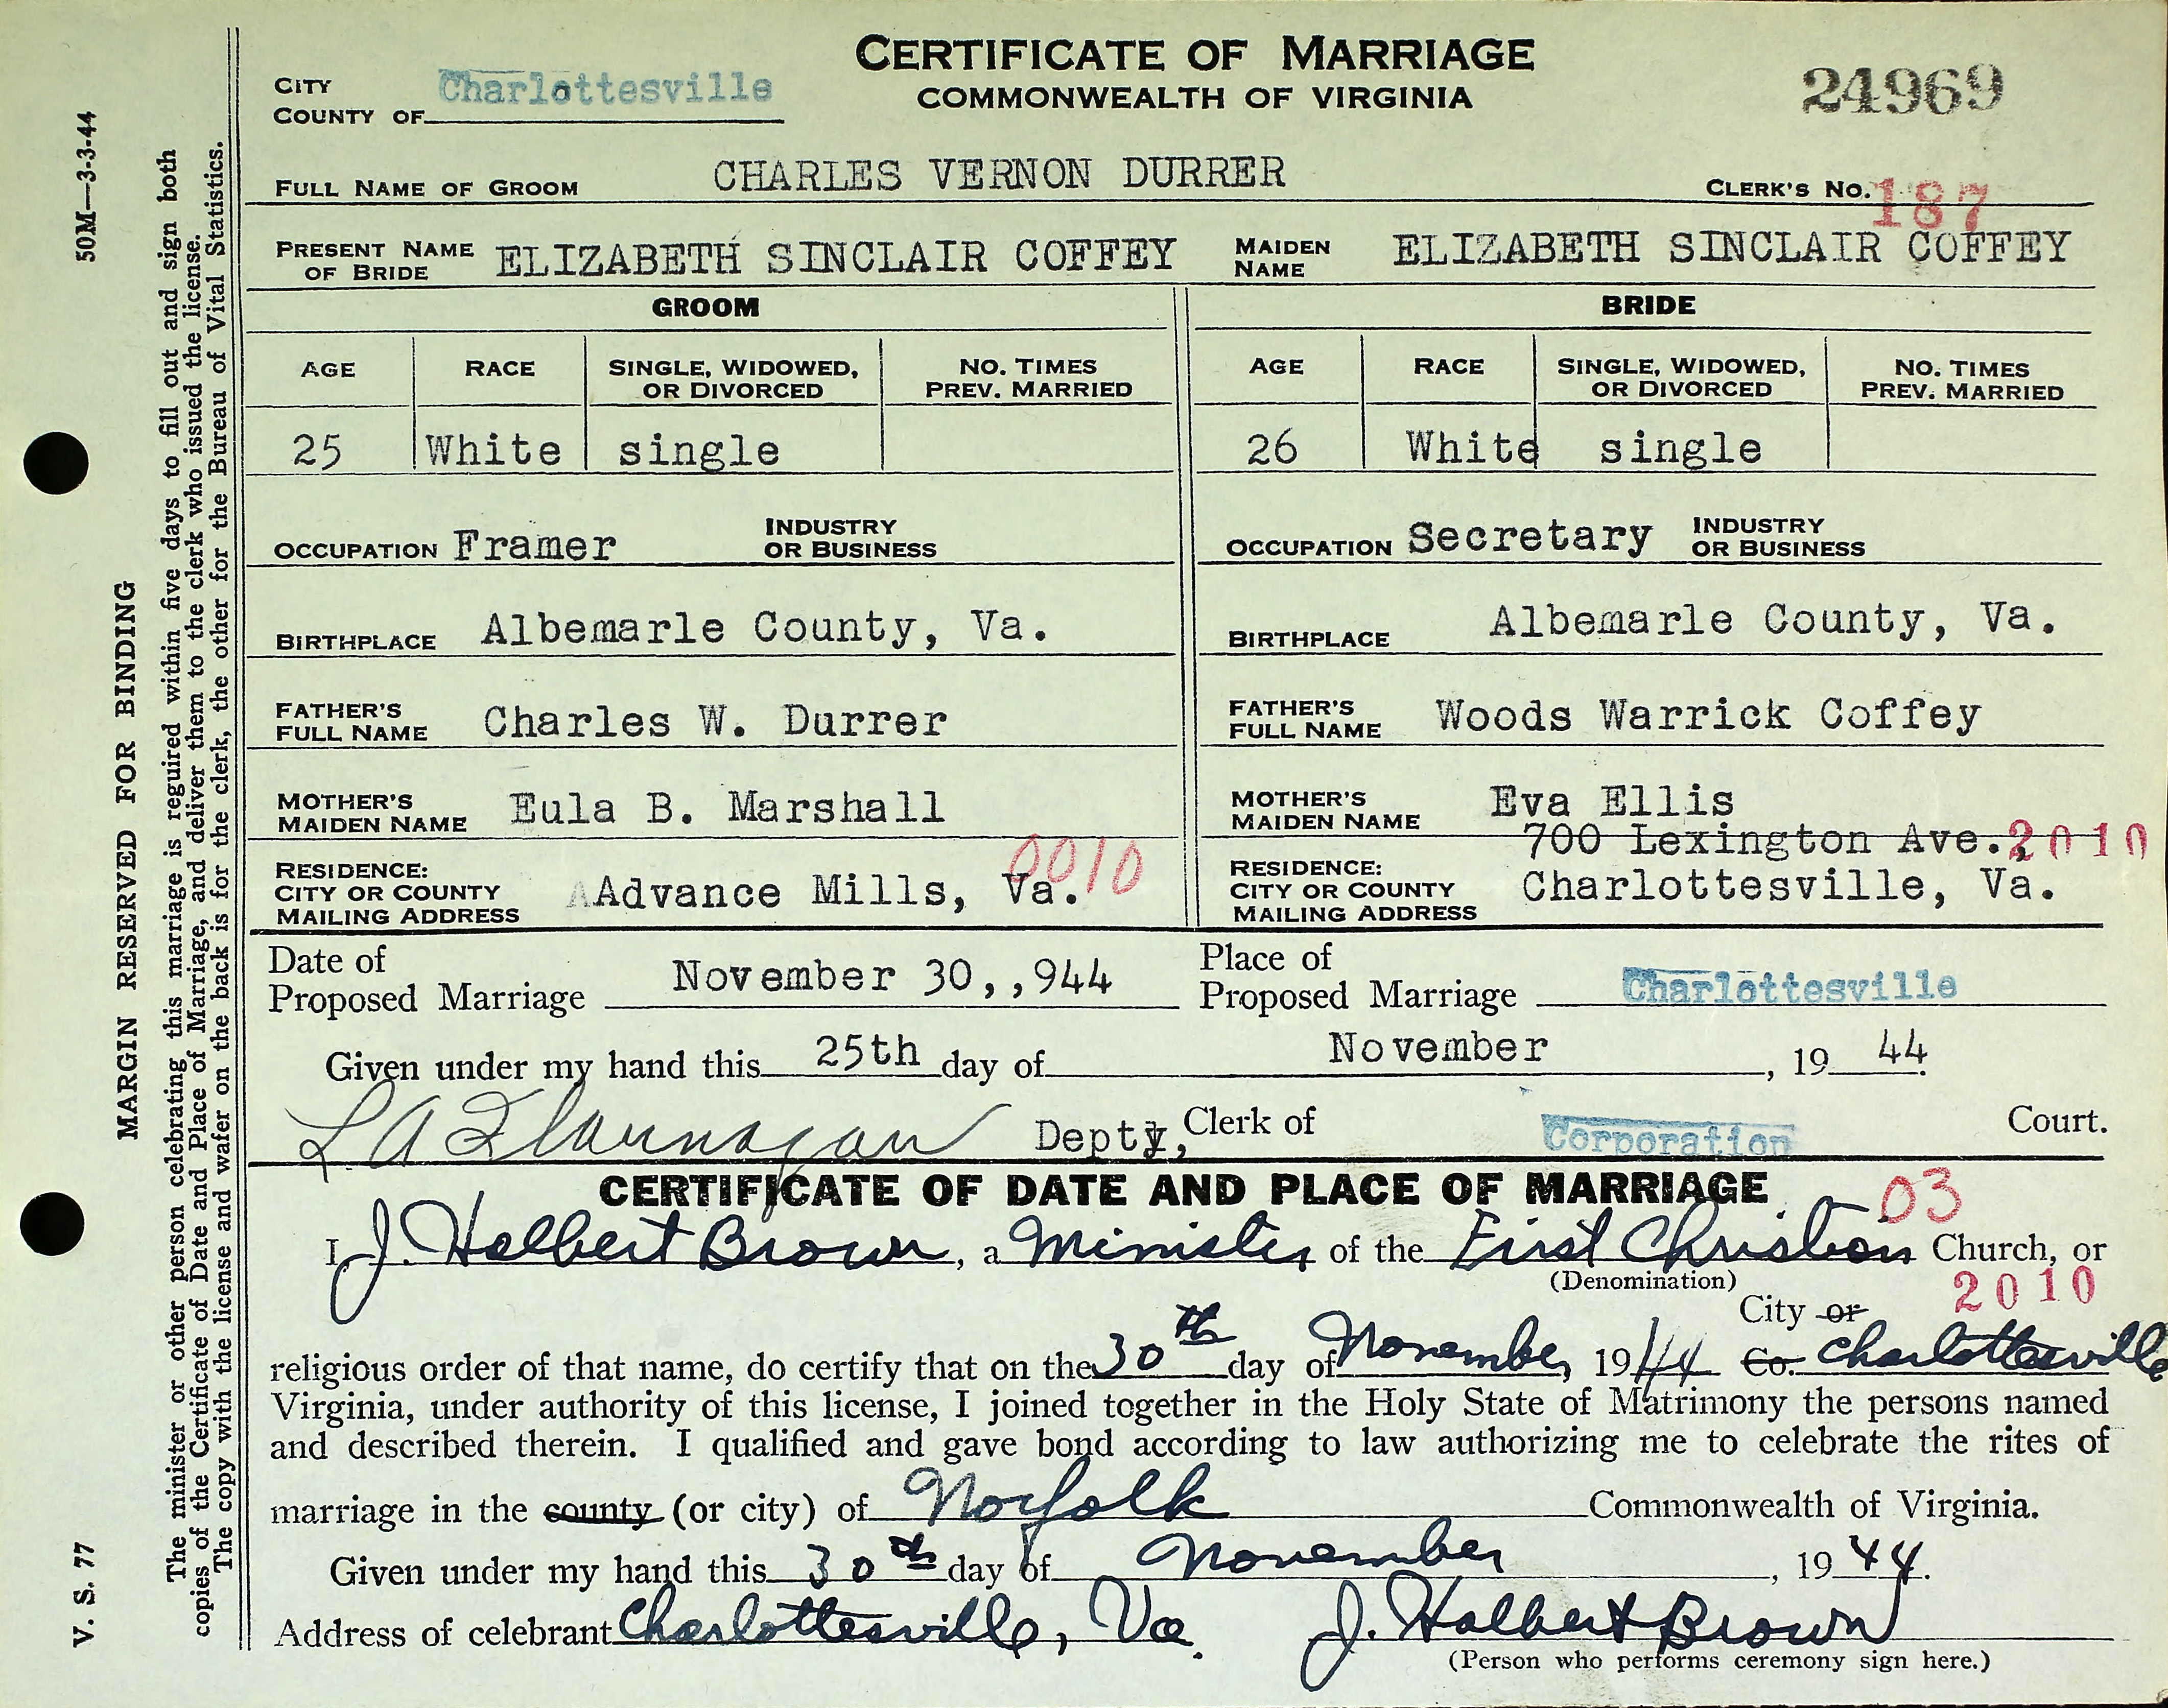 CERTIFICATE OF MARRIAGE
COMMONWEALTH OF VIRGINIA
24969
CITY
COUNTY OF Charlottesville
FULL NAME OF GROOM CHARLES VERNON DURRER CLERK'S NO. 187
PRESENT NAME OF BRIDE ELIZABETH SINCLAIR COFFEY MAIDEN NAME ELIZABETH SINCLAIR COFFEY
GROOM BRIDE
AGE RACE SINGLE, WIDOWED, OR DIVORCED NO. TIMES PREV. MARRIED AGE RACE SINGLE, WIDOWED, OR DIVORCED NO. TIMES PREV. MARRIED
25 White single 26 White single
OCCUPATION Framer INDUSTRY OR BUSINESS OCCUPATION Secretary INDUSTRY OR BUSINESS
BIRTHPLACE Albemarle County, Va. BIRTHPLACE Albemarle County, Va.
FATHER'S FULL NAME Charles W. Durrer FATHER'S FULL NAME Woods Warrick Coffey
MOTHER'S MAIDEN NAME Eula B. Marshall MOTHER'S MAIDEN NAME Eva Ellis
RESIDENCE: CITY OR COUNTY MAILING ADDRESS AAdvance Mills, Va. 0010 RESIDENCE: CITY OR COUNTY MAILING ADDRESS 700 Lexington Ave., 2010 Charlottesville, Va.
Date of Proposed Marriage November 30,,944 Place of Proposed Marriage Charlottesville
Given under my hand this 25th day of November, 19 44.
L A Flannagan Depty, Clerk of Corporation Court.
CERTIFICATE OF DATE AND PLACE OF MARRIAGE 03
I, J. Halbert Brown, a Minister of the First Christian Church, or
(Denomination)
2010
City or
religious order of that name, do certify that on the 30th day of November, 1944 Co. Charlottesville
Virginia, under authority of this license, I joined together in the Holy State of Matrimony the persons named
and described therein. I qualified and gave bond according to law authorizing me to celebrate the rites of
marriage in the county (or city) of Norfolk Commonwealth of Virginia.
Given under my hand this 30th day of November, 1944.
Address of celebrant Charlottesville, Va. J. Halbert Brown
(Person who performs ceremony sign here.)
50M—3-3-44
MARGIN RESERVED FOR BINDING
V. S. 77
The minister or other person celebrating this marriage is reguired within five days to fill out and sign both
copies of the Certificate of Date and Place of Marriage, and deliver them to the clerk who issued the license.
The copy with the license and wafer on the back is for the clerk, the other for the Bureau of Vital Statistics.